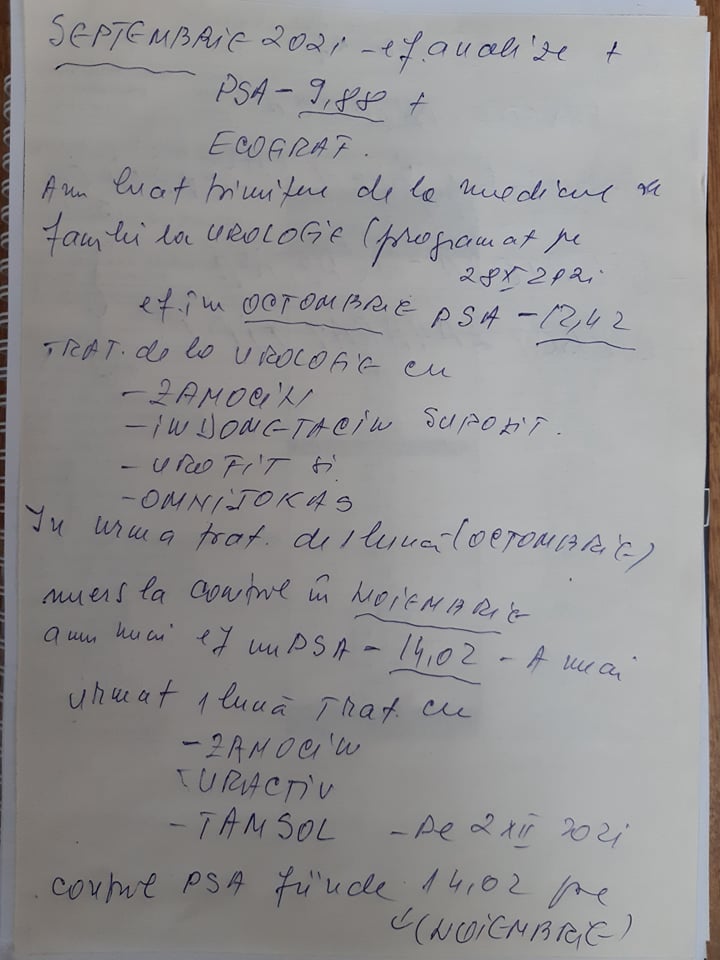 SEPTEMBRIE 2021 - ef. analize +
PSA - 9,88 +
ECOGRAF.
Am luat trimitere de la medicul de
familie la UROLOGIE (programat pe
28 X 2021
ef. in OCTOMBRIE PSA - 12,42
TRAT. de la UROLOGIE cu
- ZAMOCIN
- INDOMETACIN SUPOZIT.
- UROFIT si
- OMNITOKAS
In urma trat. de 1 lună (OCTOMBRIE)
mers la control în NOIEMBRIE
am mai ef un PSA - 14,02 - A mai
urmat 1 lună Trat. cu
- ZAMOCIN
URACTIV
- TAMSOL - Pe 2 XII 2021
control PSA fiinde 14,02 pe
(NOIEMBRIE)